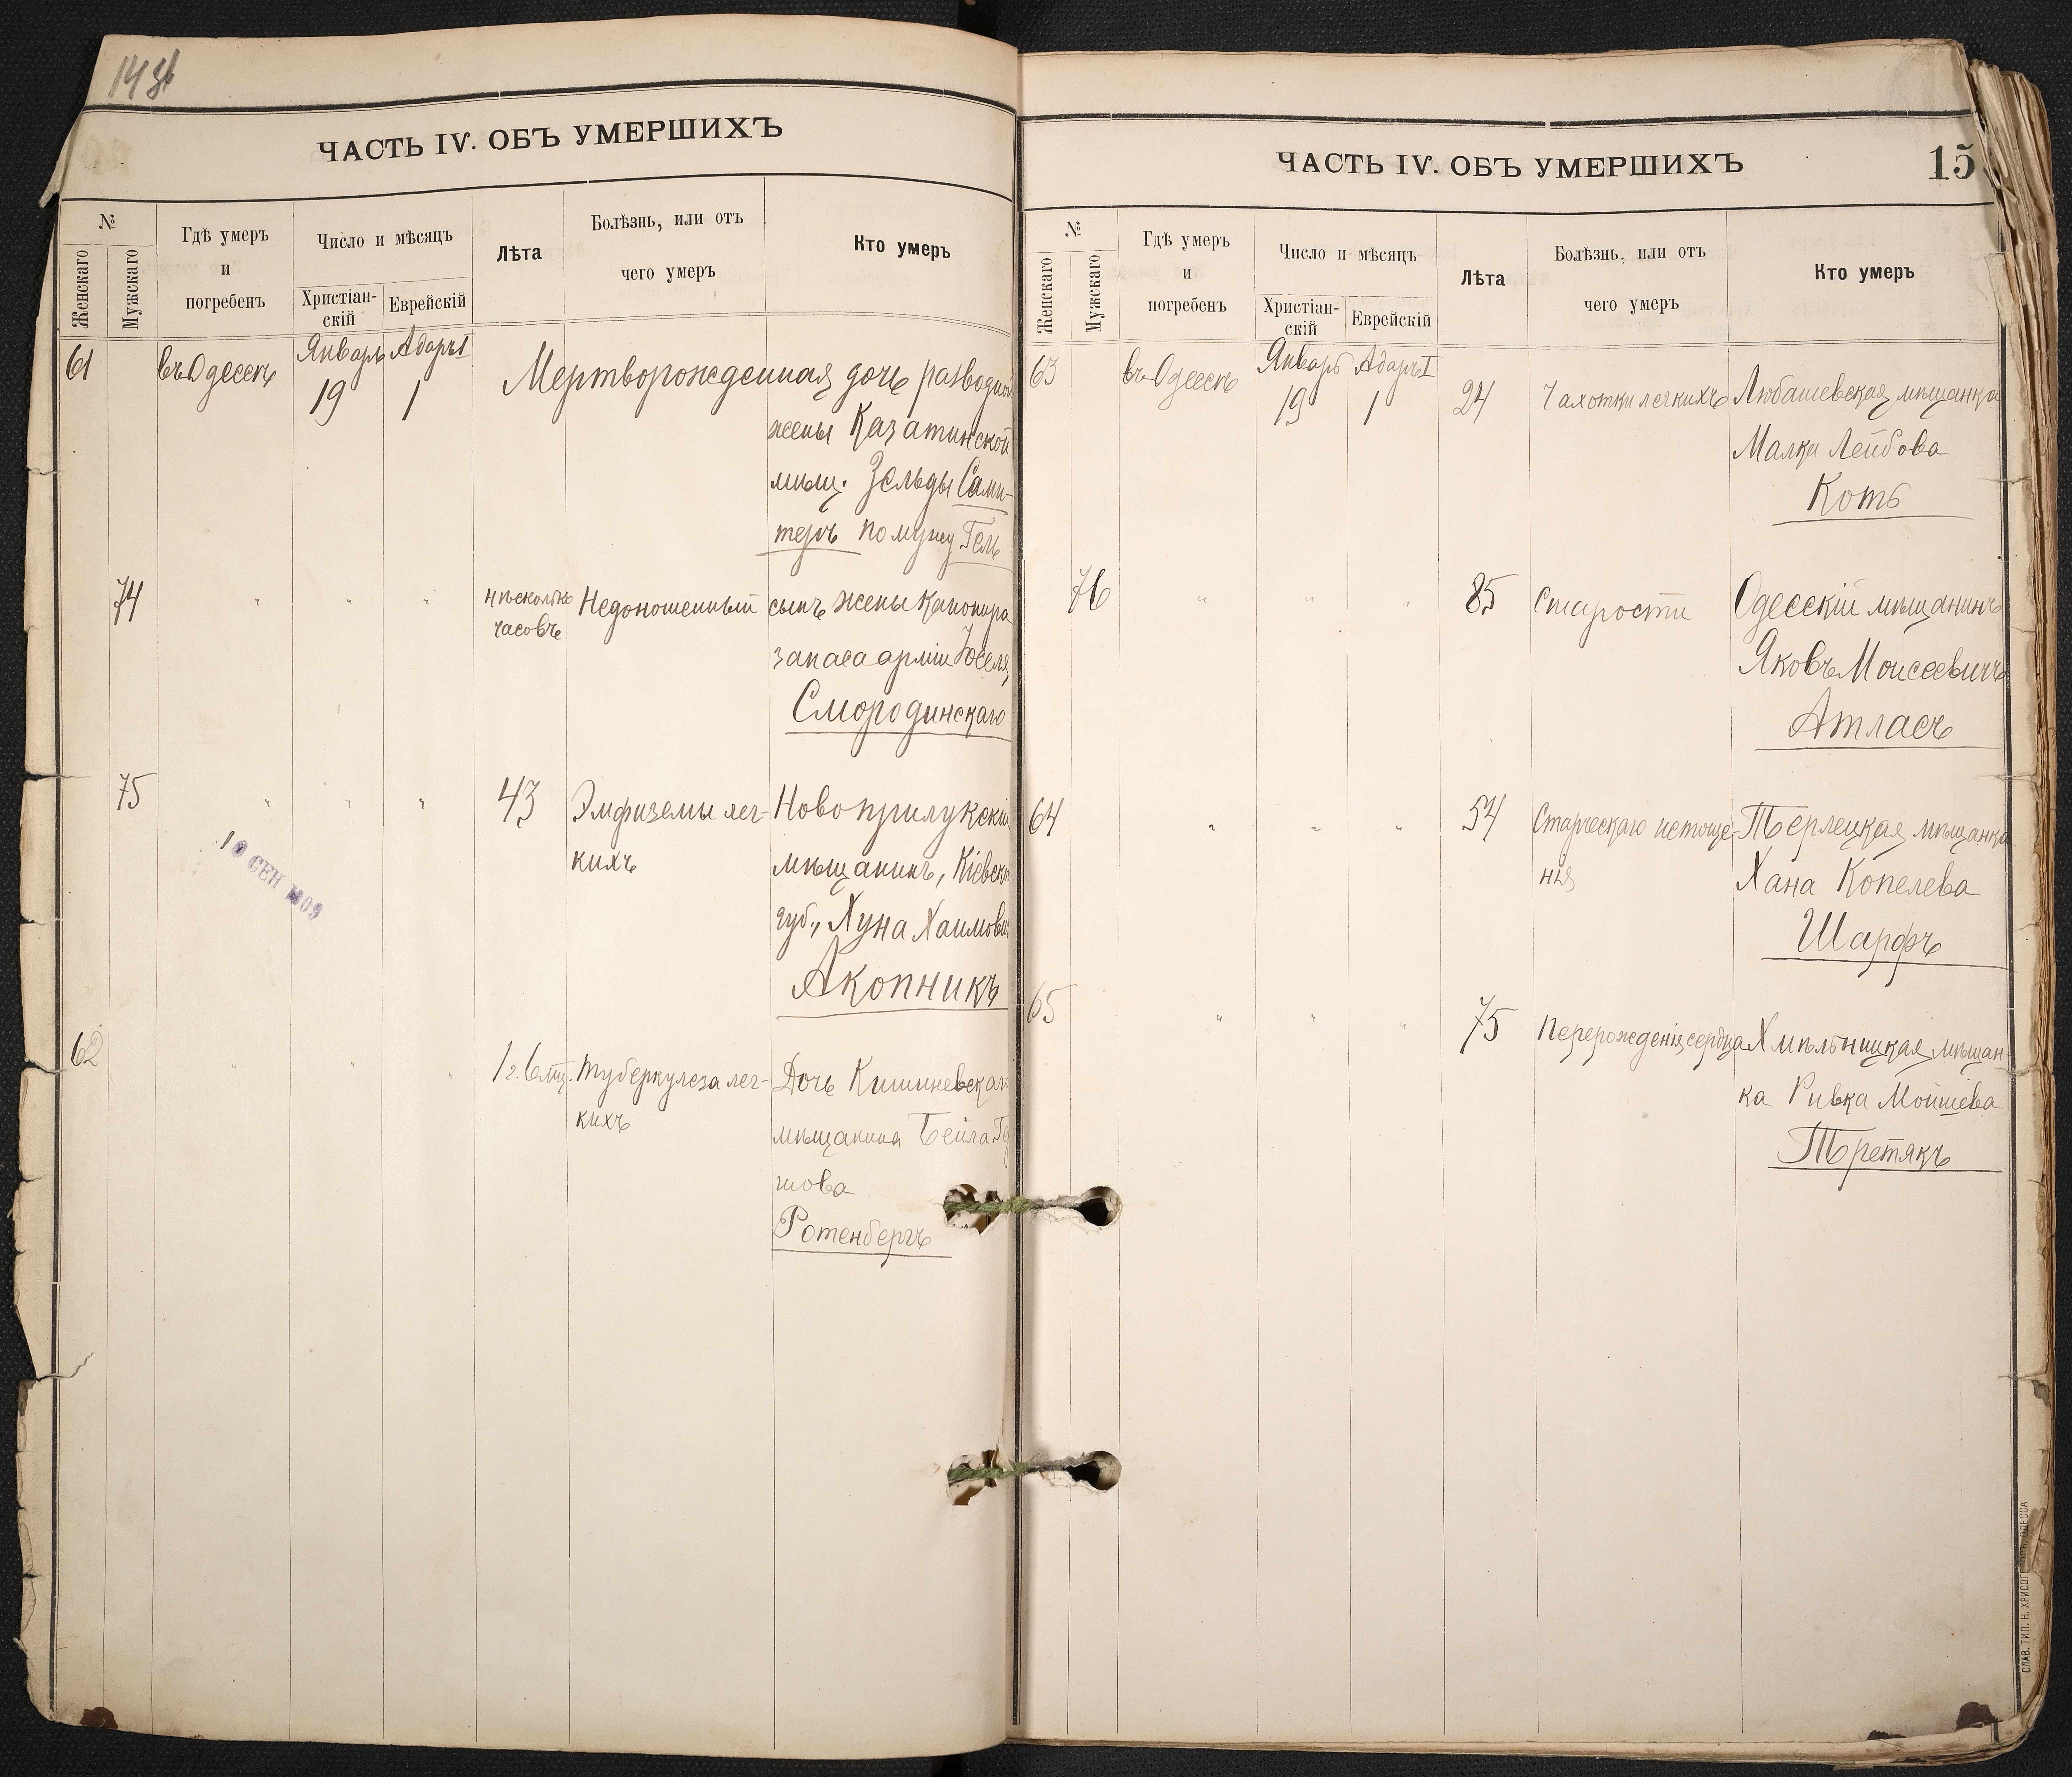 ЧАСТЬ IV. ОБЪ УМЕРШИХЪ
№
Женскаго
Мужскаго
Гдѣ умеръ
и
погребенъ
Число и мѣсяцъ
Христіан-
скій
Еврейскій
Лѣта
Болѣзнь, или отъ
чего умеръ
Кто умеръ
61 въ Одессѣ Январь Адаръ I
19 1 Мертворожденная дочь разводной
жены Казатинской
мѣщ. Зельды
теръ по мужу Гель
74 " " " нѣсколько Недоношенный сынъ жены канонира
часовъ
запаса арміи Іоселя
Смородинскаго
75 " " " 43 Эмфиземы лег- Новоприлукскій
кихъ мѣщанинъ, Кіевской
губ., Хуна Хаимович
Акопникъ
10 СЕН 1909
62 " " " 1 г. 6 мц. Туберкулеза лег- Дочь Кишиневскаго
кихъ мѣщанина Бейла Ге
шова
Ротенбергъ
ЧАСТЬ IV. ОБЪ УМЕРШИХЪ
15
№
Женскаго
Мужскаго
Гдѣ умеръ
и
погребенъ
Число и мѣсяцъ
Христіан-
скій
Еврейскій
Лѣта
Болѣзнь, или отъ
чего умеръ
Кто умеръ
63 въ Одессѣ Январь Адаръ I
19 1 24 Чахотки легкихъ Любашевская мѣщанка
Малка Лейбова
Котъ
76 " " " 85 Старости Одесскій мѣщанинъ
Яковъ Моисеевичъ
Атласъ
64 " " " 54 Старческаго истоще- Терлецкая мѣщанка
нія Хана Копелева
Шарфъ
65 " " " 75 Перерожденія сердца Хмѣльницкая мѣщан-
ка Ривка Мойшева
Третякъ
СЛАВ. ТИП. Н. ОДЕССА